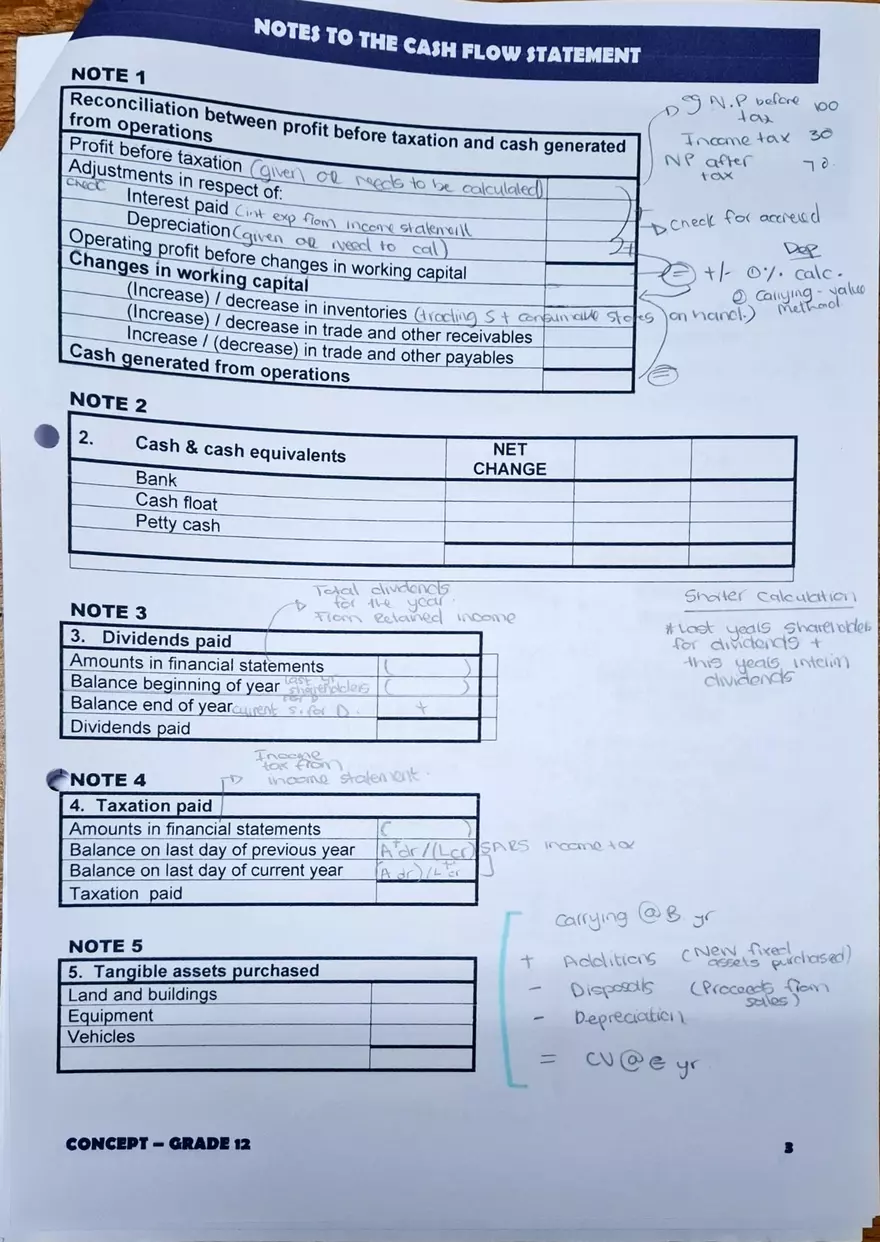 NOTES TO THE CASH FLOW STATEMENT
NOTE 1
Reconciliation between profit before taxation and cash generated
from operations
Profit before taxation (given OR needs to be calculated)
Adjustments in respect of:
check Interest paid (int exp from income statement
Depreciation (given OR need to cal)
Operating profit before changes in working capital
Changes in working capital
(Increase) / decrease in inventories (trading S + consumable stores on hand.)
(Increase) / decrease in trade and other receivables
Increase / (decrease) in trade and other payables
Cash generated from operations
eg N.P before 100
tax
Income tax 30
NP after 70.
tax
check for accrued
Dep
= +/- ① % calc.
② Carrying - value
method
+
=
NOTE 2
2. Cash & cash equivalents NET
CHANGE
Bank
Cash float
Petty cash
Total dividends
for the year.
From Retained income
NOTE 3
3. Dividends paid
Amounts in financial statements ( )
Balance beginning of year last yr shareholders for D ( )
Balance end of year current S. for D. +
Dividends paid
Shorter Calculation
* Last years shareholders
for dividends +
this years interim
dividends
Income
tax from
income statement.
NOTE 4
4. Taxation paid
Amounts in financial statements ( )
Balance on last day of previous year A+dr/(Lcr) SARS income tax
Balance on last day of current year (A dr)/L+cr
Taxation paid
NOTE 5
5. Tangible assets purchased
Land and buildings
Equipment
Vehicles
Carrying @ B yr
+ Additions (New fixed
assets purchased)
- Disposals (Proceeds from
sales)
- Depreciation
= CV @ e yr
CONCEPT – GRADE 12
3